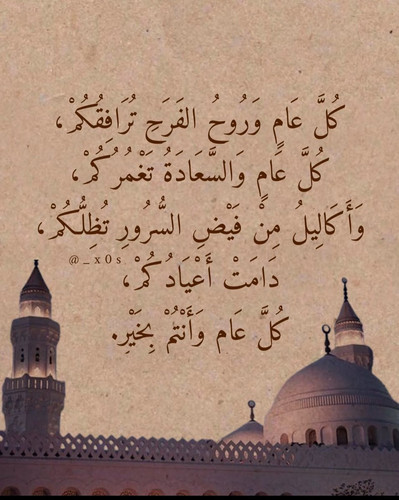 كُلَّ عَامٍ وَرُوحُ الفَرَحِ تُرَافِقُكُمْ،
كُلَّ عَامٍ وَالسَّعَادَةُ تَغْمُرُكُمْ،
وَأَكَالِيلُ مِنْ فَيْضِ السُّرُورِ تُظِلُّكُمْ،
@_x0s
دَامَتْ أَعْيَادُكُمْ،
كُلَّ عَام وَأَنْتُمْ بِخَيْرِ.